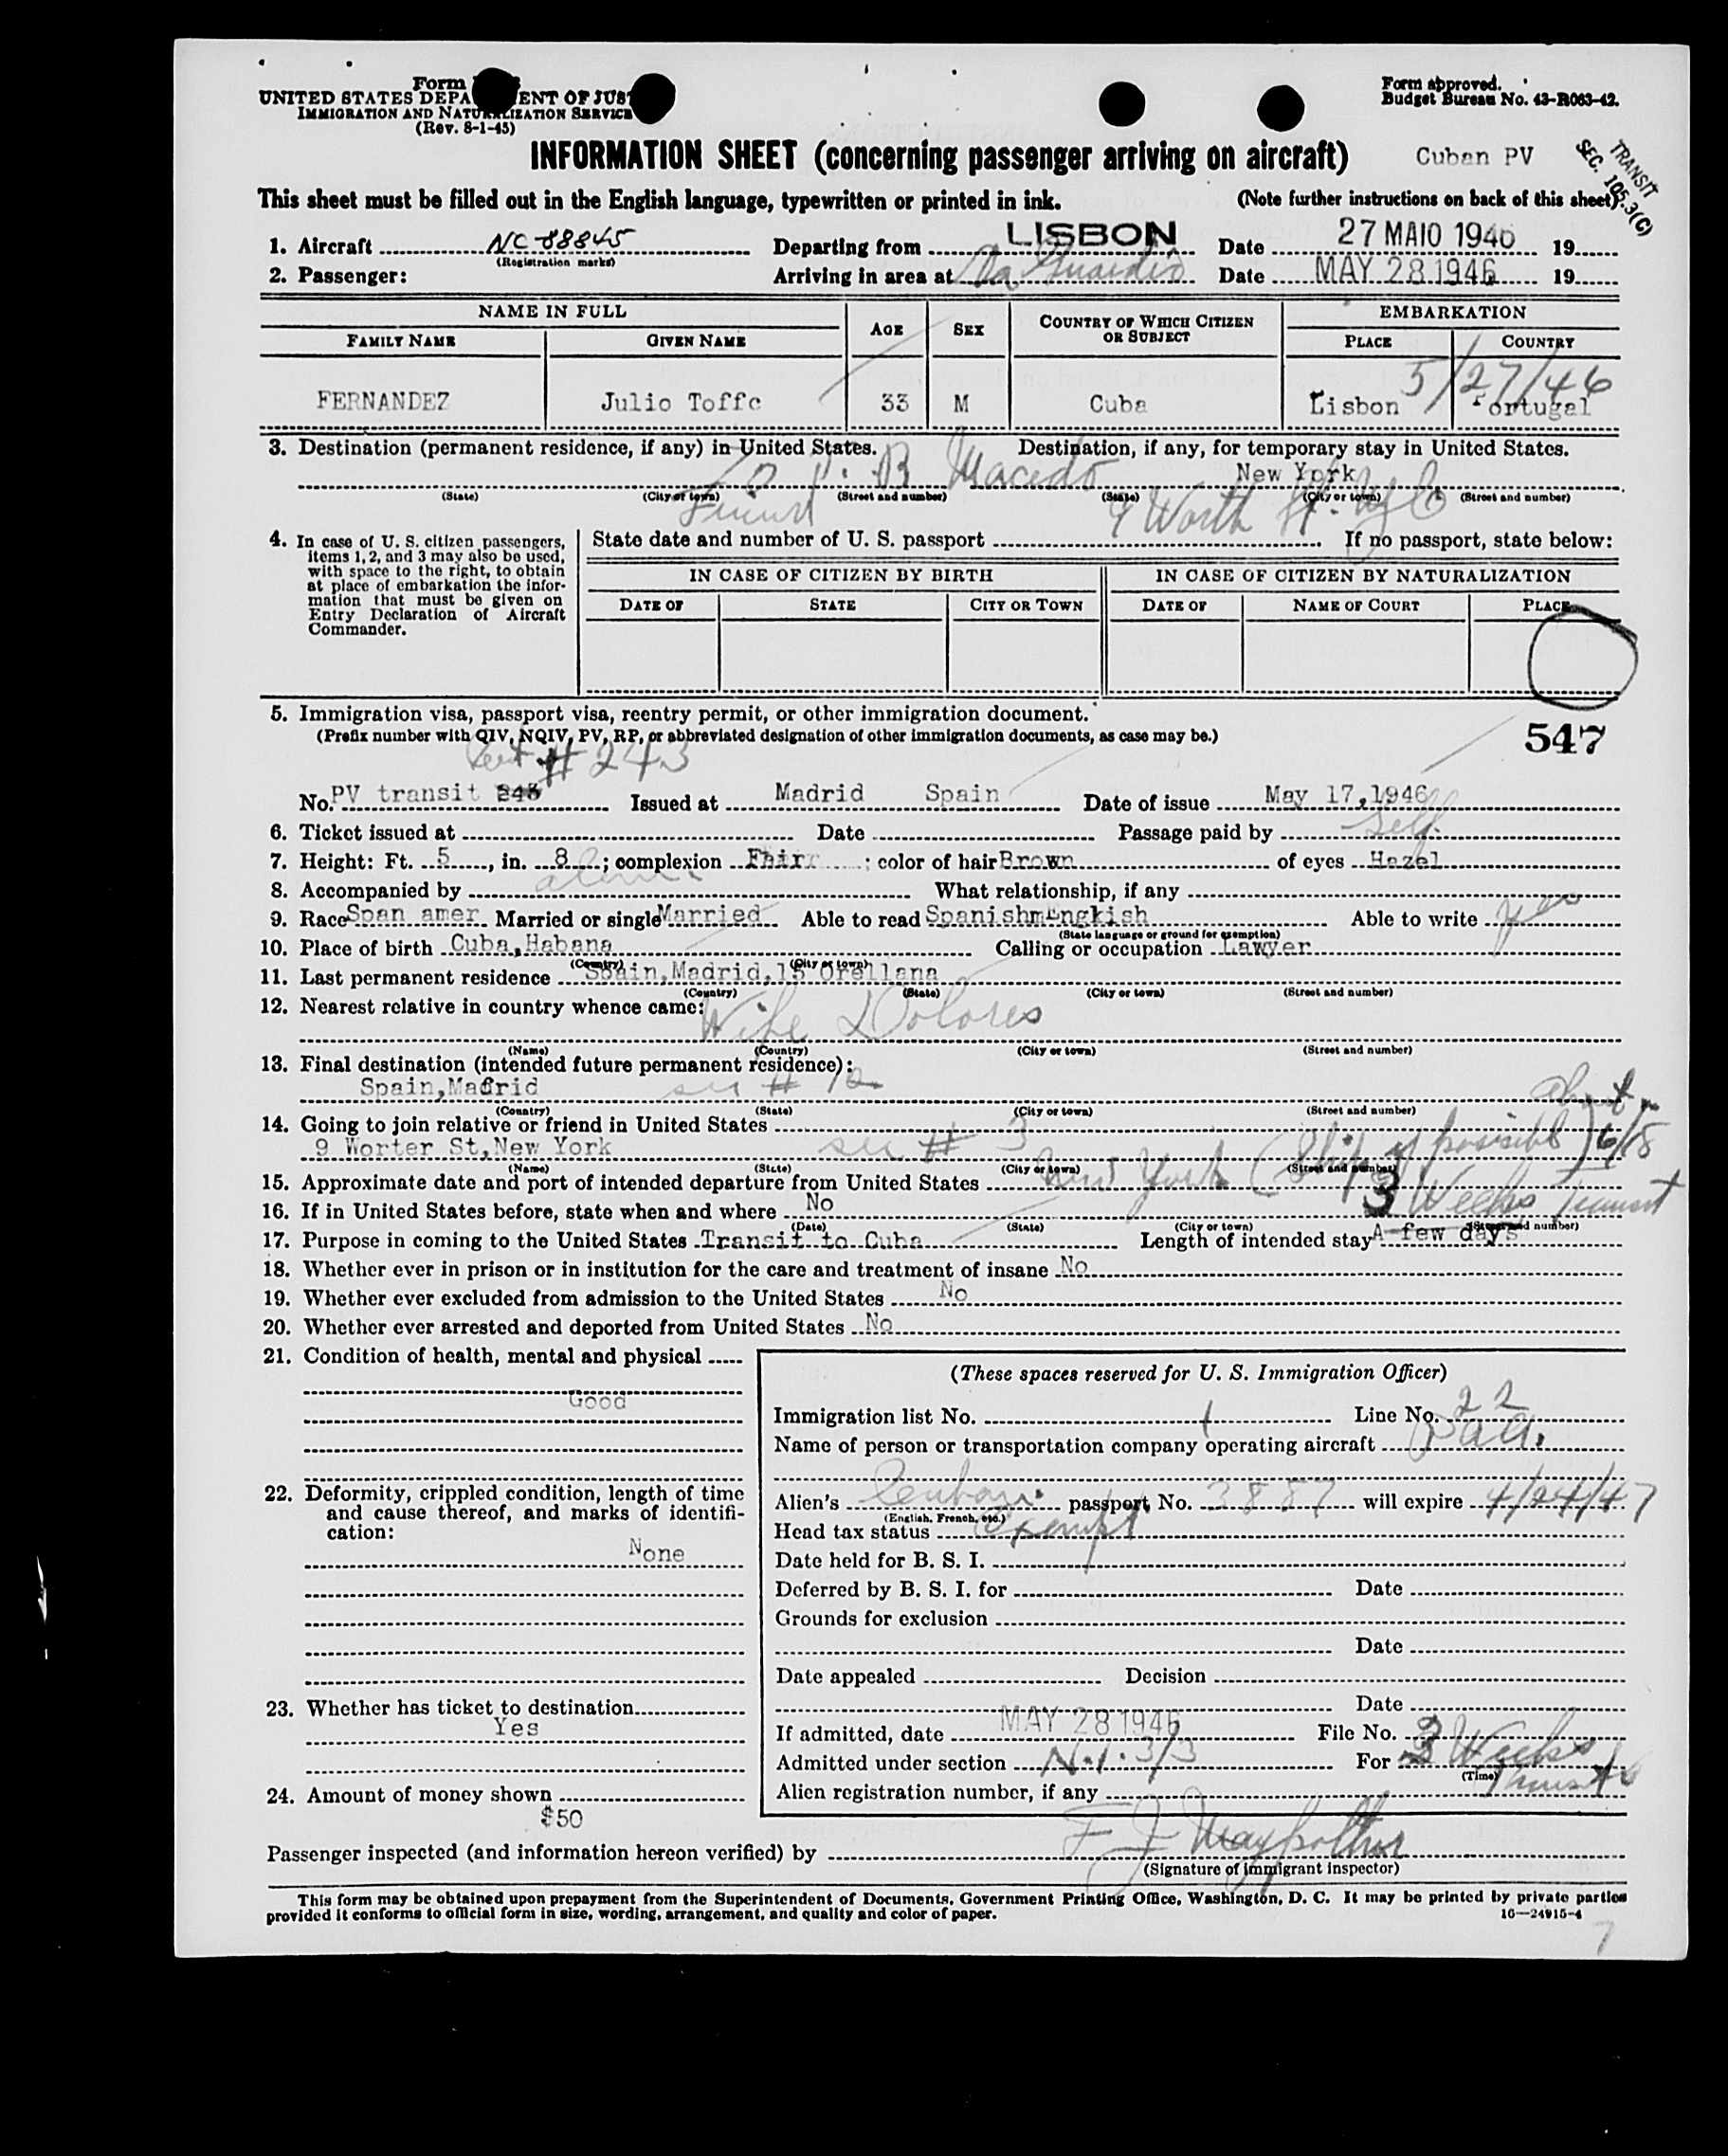 Form
UNITED STATES DEPA ENT OF JUS
IMMIGRATION AND NATURALIZATION SERVICE
(Rev. 8-1-45)
Form approved.
Budget Bureau No. 43-R063-42.
INFORMATION SHEET (concerning passenger arriving on aircraft)
Cuban PV
TRANSIT
SEC. 105.3(C)
This sheet must be filled out in the English language, typewritten or printed in ink.
(Note further instructions on back of this sheet)
1. Aircraft NC-88845 Departing from LISBON Date 27 MAIO 1946 19
(Registration marks)
2. Passenger: Arriving in area at La Guardia Date MAY 28 1946 19
NAME IN FULL AGE SEX COUNTRY OF WHICH CITIZEN OR SUBJECT EMBARKATION
FAMILY NAME GIVEN NAME PLACE COUNTRY
5/27/46
FERNANDEZ Julio Toffc 33 M Cuba Lisbon Portugal
3. Destination (permanent residence, if any) in United States. Destination, if any, for temporary stay in United States.
B Macedo New York
(State) (City or town) (Street and number) (State) (City or town) (Street and number)
Friend 9 Worth St. NYC
4. In case of U. S. citizen passengers, items 1, 2, and 3 may also be used, with space to the right, to obtain at place of embarkation the information that must be given on Entry Declaration of Aircraft Commander.
State date and number of U. S. passport If no passport, state below:
IN CASE OF CITIZEN BY BIRTH IN CASE OF CITIZEN BY NATURALIZATION
DATE OF STATE CITY OR TOWN DATE OF NAME OF COURT PLACE
5. Immigration visa, passport visa, reentry permit, or other immigration document.
(Prefix number with QIV, NQIV, PV, RP, or abbreviated designation of other immigration documents, as case may be.)
547
# 243
No. PV transit 243 Issued at Madrid Spain Date of issue May 17,1946
6. Ticket issued at Date Passage paid by Self
7. Height: Ft. 5, in. 8; complexion Fair; color of hair Brown of eyes Hazel
8. Accompanied by alone What relationship, if any
9. Race Span amer Married or single Married Able to read SpanishmEngkish Able to write yes
(State language or ground for exemption)
10. Place of birth Cuba,Habana Calling or occupation Lawyer
(Country) (City or town)
11. Last permanent residence Spain,Madrid,15 Orellana
(Country) (State) (City or town) (Street and number)
12. Nearest relative in country whence came: Wife Dolores
(Name) (Country) (City or town) (Street and number)
13. Final destination (intended future permanent residence):
Spain,Madrid see # 12
(Country) (State) (City or town) (Street and number)
about
14. Going to join relative or friend in United States
9 Worter St,New York see # 3
(Name) (State) (City or town) (Street and number)
15. Approximate date and port of intended departure from United States New York (Ship if possible) 6/18
3 Weeks Transit
16. If in United States before, state when and where No
(Date) (State) (City or town) (Street and number)
17. Purpose in coming to the United States Transit to Cuba Length of intended stay A few days
18. Whether ever in prison or in institution for the care and treatment of insane No
19. Whether ever excluded from admission to the United States No
20. Whether ever arrested and deported from United States No
21. Condition of health, mental and physical
Good
22. Deformity, crippled condition, length of time and cause thereof, and marks of identification:
None
23. Whether has ticket to destination
Yes
24. Amount of money shown
$50
(These spaces reserved for U. S. Immigration Officer)
Immigration list No. 1 Line No. 22
Name of person or transportation company operating aircraft PAA.
Alien's Cuban passport No. 3887 will expire 4/24/47
(English, French, etc.)
Head tax status Exempt
Date held for B. S. I.
Deferred by B. S. I. for Date
Grounds for exclusion
Date
Date appealed Decision
Date
If admitted, date MAY 28 1946 File No.
Admitted under section N.I. 3/3 For 3 Weeks
(Time) Transit
Alien registration number, if any
Passenger inspected (and information hereon verified) by F J
(Signature of immigrant inspector)
This form may be obtained upon prepayment from the Superintendent of Documents, Government Printing Office, Washington, D. C. It may be printed by private parties
provided it conforms to official form in size, wording, arrangement, and quality and color of paper.
16—24915-4
7